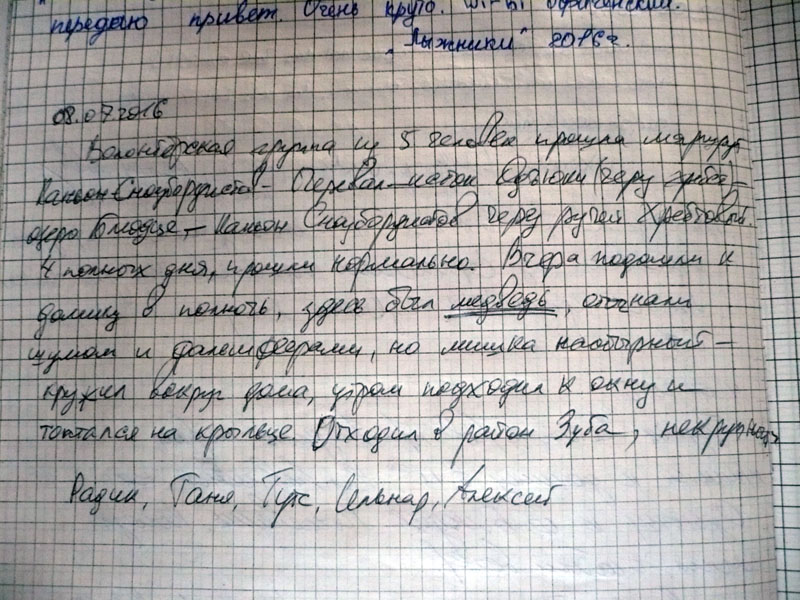 передаю привет. Очень круто. Wi-Fi офигенский.
"Лыжники" 2016г.
08.07.2016
Волонтёрская группа из 5 человек прошла маршрут
Каньон Сноубордистов - Перевал - исток (через хребет) -
озеро Блюдце, - Каньон Сноубордистов через ручей Хребтовый.
4 полных дня, прошли нормально. Вчера подошли к
домику в полночь, здесь был медведь, отогнали
шумом и фальшфеерами, но мишка настырный -
кружил вокруг дома, утром подходил к окну и
топтался на крыльце. Отходил в район Зуба, некрупный
Радик, Таня, Алексей